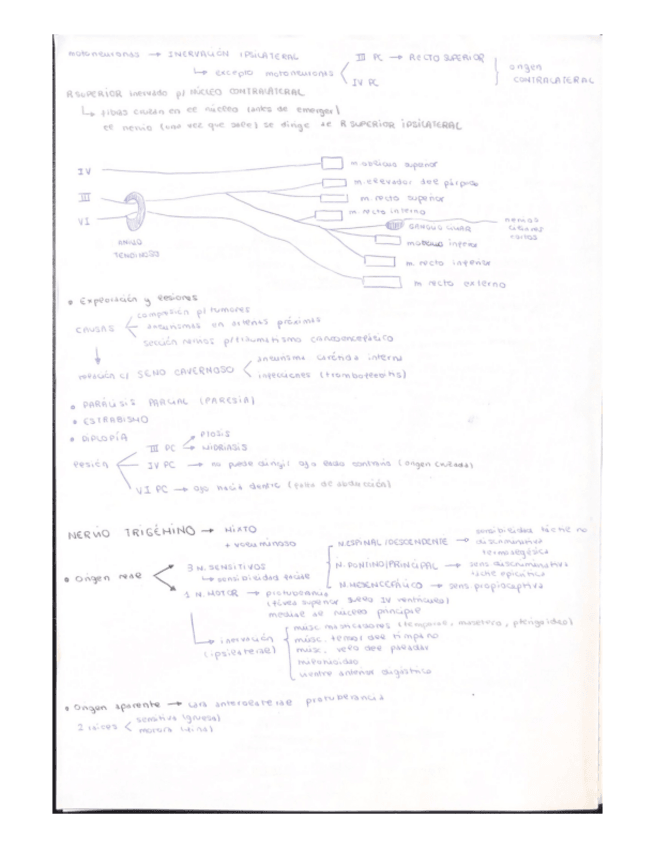 motoneuronas → INERVACIÓN IPSILATERAL
↳ excepto motoneuronas < III PC → RECTO SUPERIOR
IV PC } origen CONTRALATERAL
R SUPERIOR inervado p/ NÚCLEO CONTRALATERAL
↳ fibras cruzan en el núcleo (antes de emerger)
el nervio (una vez que sale) se dirige al R SUPERIOR IPSILATERAL
IV
III
VI
ANILLO TENDINOSO
m. oblicuo superior
m. elevador del párpado
m. recto superior
m. recto interno
GANGLIO CILIAR
nervios ciliares cortos
m. oblicuo inferior
m. recto inferior
m. recto externo
• Exploración y lesiones
CAUSAS < compresión p/ tumores
aneurismas en arterias próximas
sección nervios p/ traumatismo craneoencefálico
↓
relación c/ SENO CAVERNOSO < aneurisma carótida interna
infecciones (tromboflebitis)
• PARÁLISIS PARCIAL (PARESIA)
• ESTRABISMO
• DIPLOPÍA
Lesión
III PC → PTOSIS
→ MIDRIASIS
IV PC → no puede dirigir ojo lado contrario (origen cruzado)
VI PC → ojo hacia dentro (falla de abducción)
NERVIO TRIGÉMINO → MIXTO
+ voluminoso
• Origen real
3 N. SENSITIVOS
↳ sensibilidad facial
N. ESPINAL/DESCENDENTE → sensibilidad táctil no discriminativa termoalgésica
N. PONTINO/PRINCIPAL → sens. discriminativa táctil epicrítica
N. MESENCEFÁLICO → sens. propioceptiva
1 N. MOTOR → protuberancia
(tercio superior suelo IV ventrículo)
medial al núcleo principal
↳ inervación (ipsilateral)
musc masticadores (temporal, masetero, pterigoideo)
musc. tensor del tímpano
musc. velo del paladar
milohioideo
vientre anterior digástrico
• Origen aparente → cara anterolateral protuberancia
2 raíces < sensitiva (gruesa)
motora (fina)